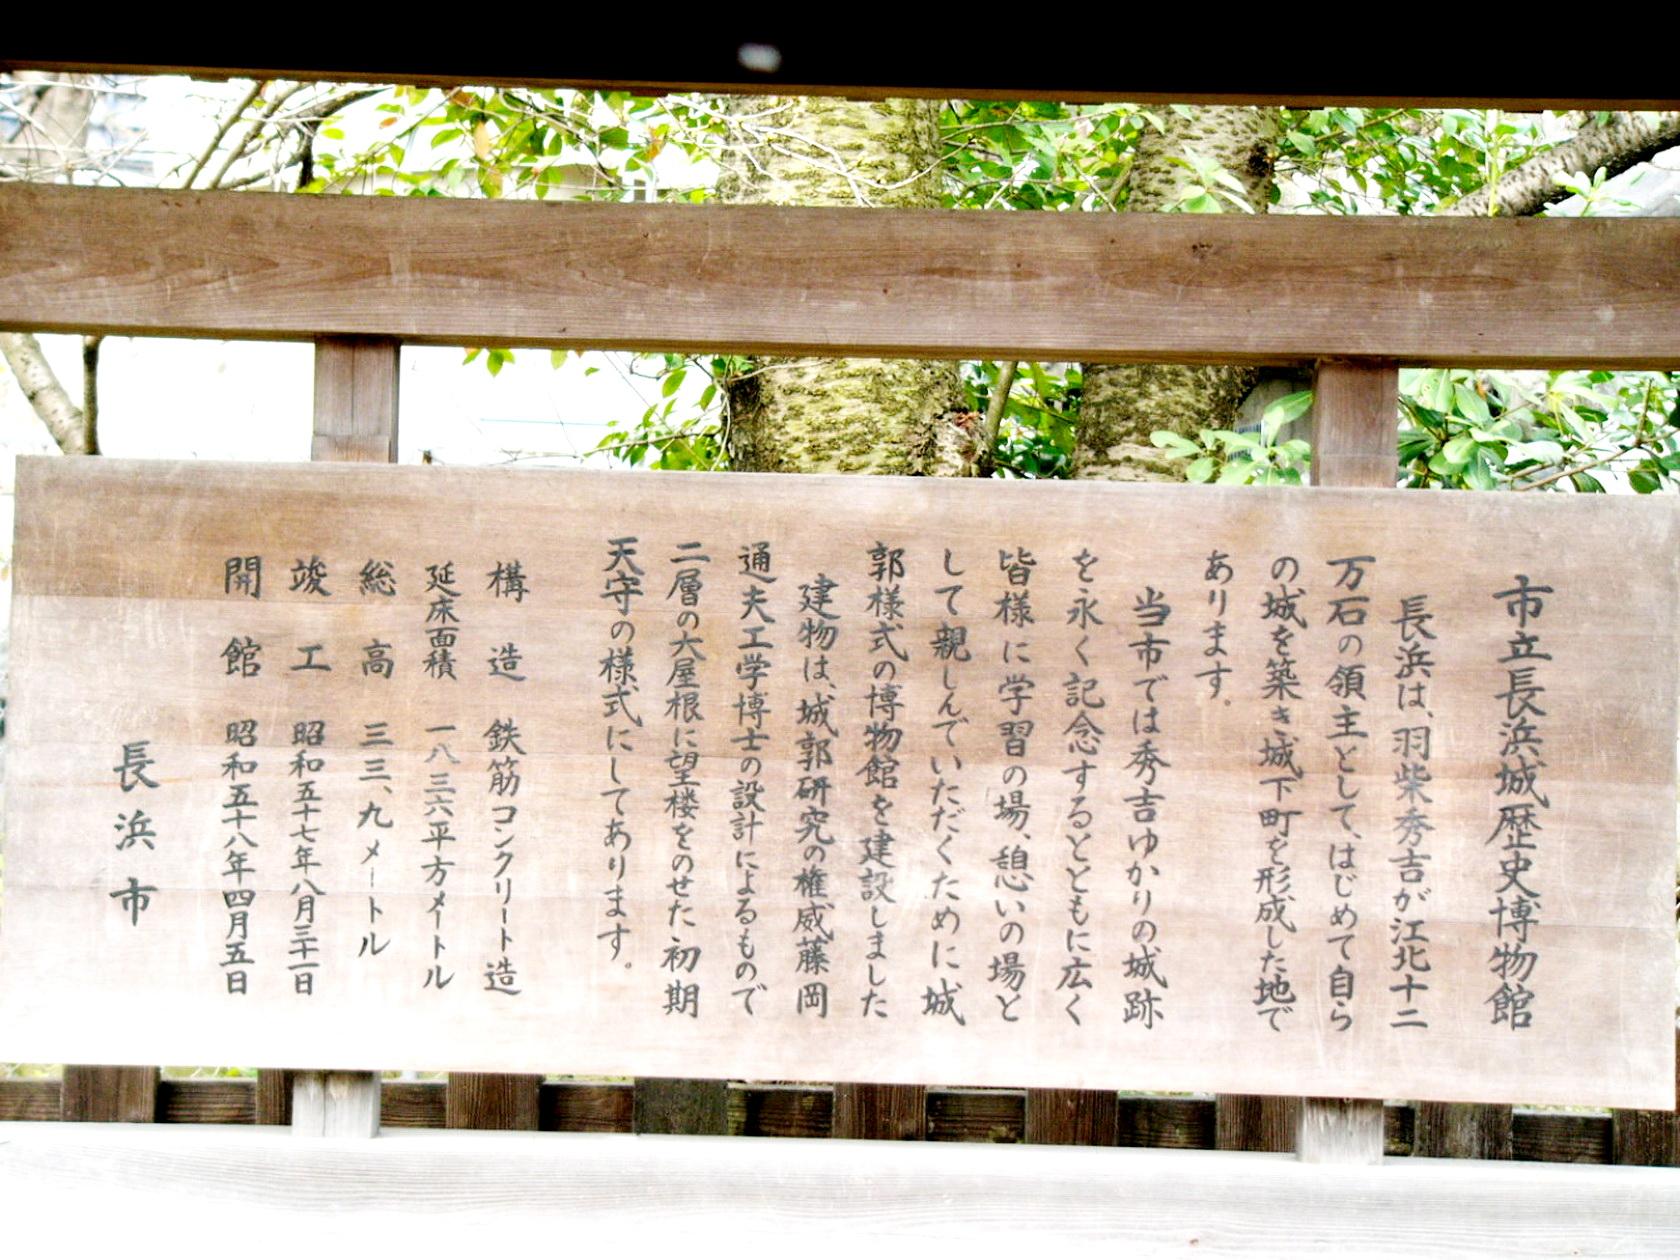 市立長浜城歴史博物館
長浜は、羽柴秀吉が江北十二
万石の領主として、はじめて自ら
の城を築き城下町を形成した地で
あります。
当市では秀吉ゆかりの城跡
を永く記念するとともに広く
皆様に学習の場、憩いの場と
して親しんでいただくために城
郭様式の博物館を建設しました
建物は、城郭研究の権威藤岡
通夫工学博士の設計によるもので
二層の大屋根に望楼をのせた初期
天守の様式にしてあります。
構造 鉄筋コンクリート造
延床面積 一八三六平方メートル
総高 三三、九メートル
竣工 昭和五十七年八月三十一日
開館 昭和五十八年四月五日
長浜市